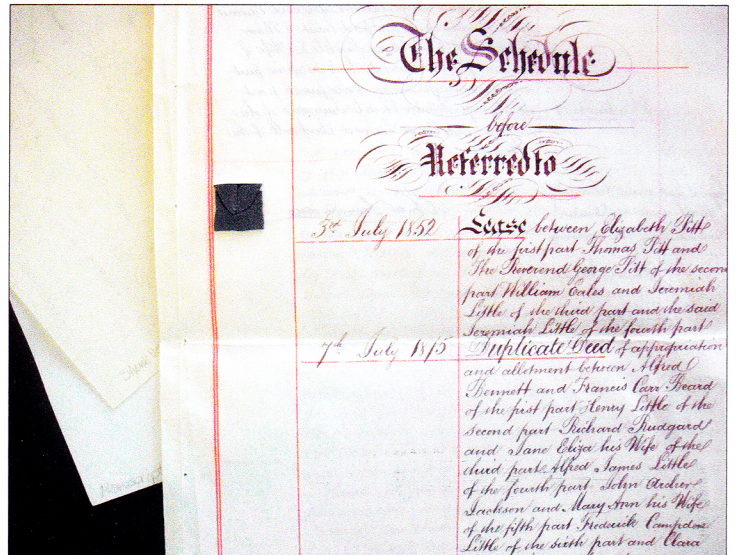 The Schedule
before
Referred to
3rd July 1852 Lease between Elizabeth Pitt
of the first part Thomas Pitt and
The Reverend George Pitt of the second
part William Eales and Jeremiah
Little of the third part and the said
Jeremiah Little of the fourth part
7th July 1875 Duplicate Deed of appropriation
and allotment between Alfred
Bennett and Francis Carr Beard
of the first part Henry Little of the
second part Richard Rudgard
and Jane Eliza his Wife of the
third part Alfred James Little
of the fourth part John Archer
Jackson and Mary Ann his Wife
of the fifth part Frederick Campdon
Little of the sixth part and Clara